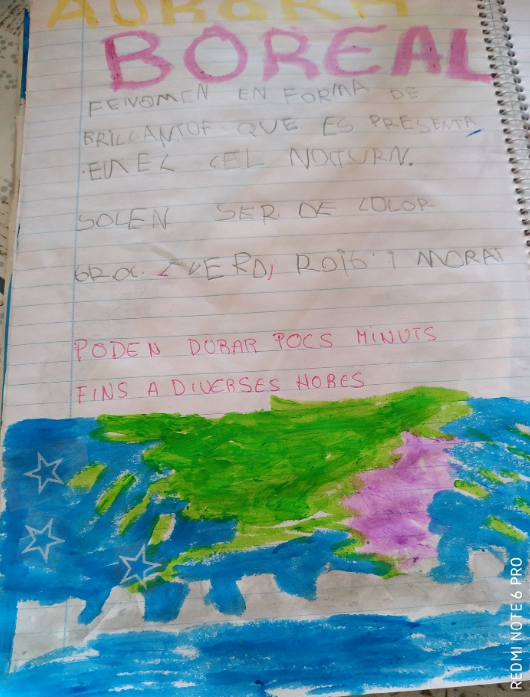 AURORA
BOREAL
FENOMEN EN FORMA DE
BRILLANTOF QUE ES PRESENTA
EN EL CEL NOCTURN.
SOLEN SER DE COLOR
VERD, ROIG I MORAT
PODEN DURAR POCS MINUTS
FINS A DIVERSES HORES
REDMI NOTE 6 PRO